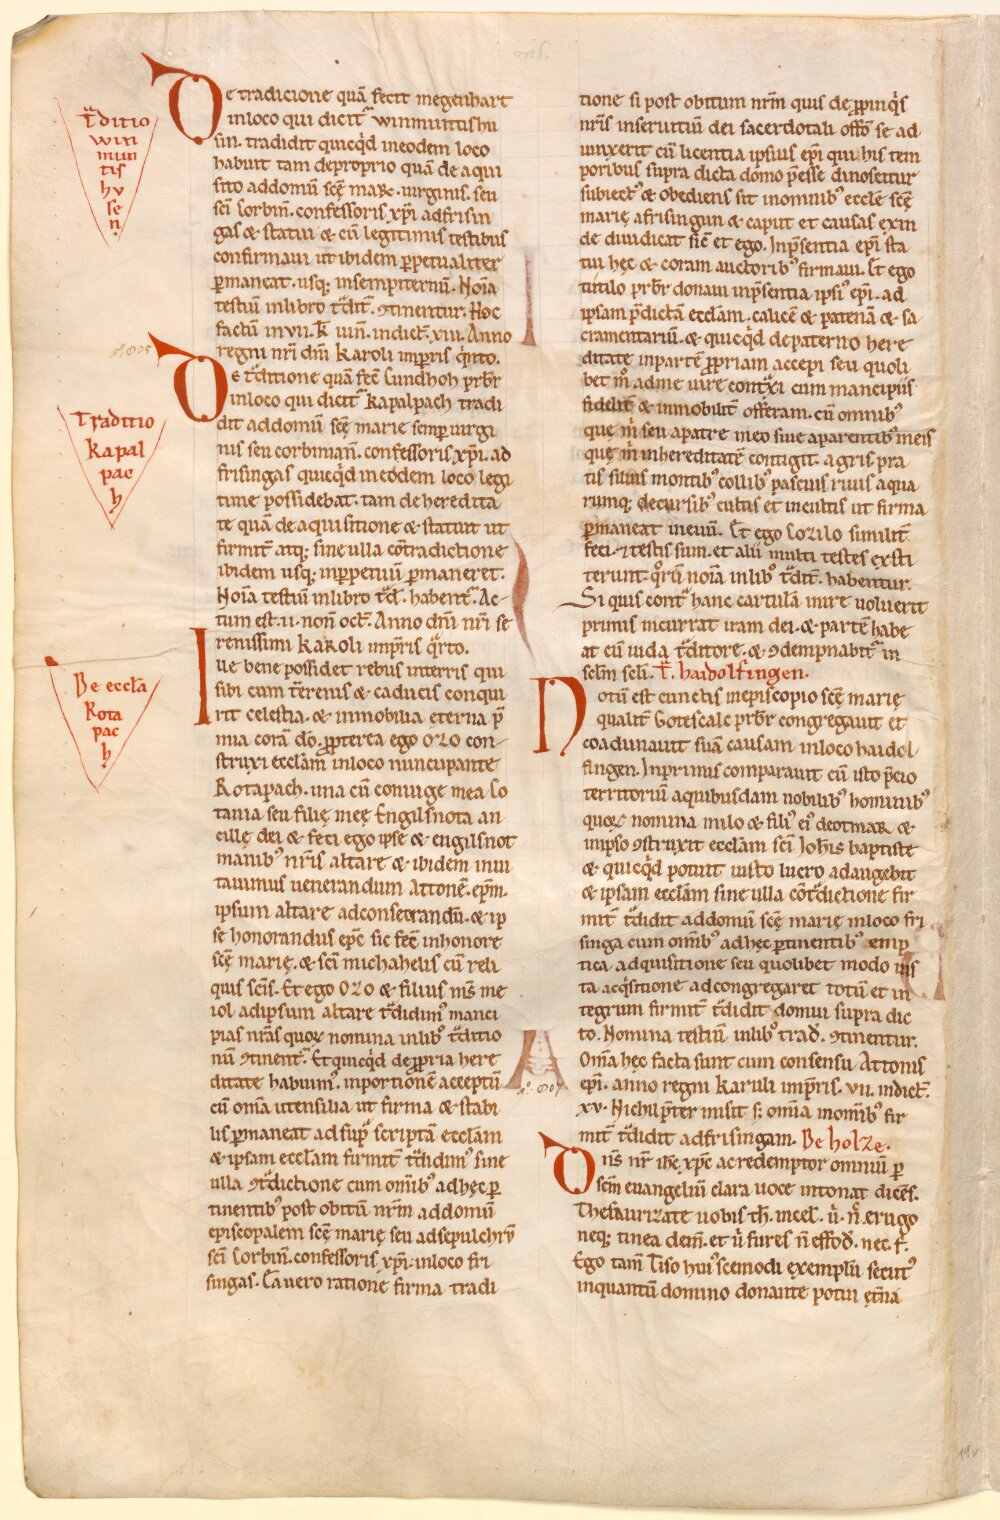 T̄ditio
win
mun
tis
hu
se
n
De tradicione quā fecit megenhart
inloco qui dicit᷑ winmuntishu
sin. tradidit quicq̇d ineodem loco
habuit tam deproprio quā de aqui
sito addomū scē maꝶ. uirginis. seu
sc̄i Corbin̄. confessoris xp̄i adfrisin
gas & statui & cū legitimis testibus
confirmaui ut ibidem ꝑpetualiter
ꝑmaneat. usq; insempiternū. Noīa
testiū inlibro t̄dit̄. ꝯtinentur. Hoc
factū in vii. k̄ iun̄. indict̄. xiii. Anno
regni nr̄i dn̄i karoli imp̄ris q̇rto.
Traditio
kapal
pac
h
De t̄ditione quā fec̄ Cundhoh pr̄br
inloco qui dicit᷑ kapalpach tradi
dit addomū scē marie semꝑ uirgi
nis seu corbinian̄. confessoris xp̄i. ad
frisingas quicq̇d ineodem loco legi
time possidebat. tam de heredita
te quā de aquisitione & statuit ut
firmit̄ atq; sine ulla cōtradictione
ibidem usq; inꝑpetuū ꝑmaneret.
Noīa testiū inlibro t̄d̄. habent᷑. Ac
tum est. ii. non̄ oct̄. Anno dn̄i nr̄i se
renissimi karoli imp̄ris q̇rto.
De eccl̄a
Rota
pac
h
Iue bene possidet rebus interris qui
sibi cum t̄renis & caducis conqui
rit celestia. & inmobilia eterna p̄
mia corā dō. ꝓpterea ego ozo con
struxi eccl̄am inloco nuncupante
Rotapach. una cū coniuge mea Co
tania seu filię meę Engilsnota an
cillę dei & feci ego ipse & engilsnot
manib᾽ nr̄is altare & ibidem inui
tauimus uenerandum Attonē. ep̄m.
ipsum altare adconsecrandū. & ip
se honorandus ep̄c sic fec̄ inhonore
scē marię. & sc̄i michahelis cū reli
quis sc̄is. Et ego ozo & filius m̄s me
iol adipsum altare t̄didim᾽ manci
pias nr̄as quoꝶ nomina inlib᾽ t̄ditio
nū ꝯtinent᷑. Et quicq̇d deꝓpria here
ditate habuim᾽. inportionē acceptū
cū om̄a utensilia ut firma & stabi
lis ꝑmaneat ad sup̄ scriptā eccl̄am
& ipsam eccl̄am firmit̄ t̄didim᾽ sine
ulla ꝯt̄dictione cum om̄ib᾽ adhęc ꝑ
tinentib᾽ post obitū nr̄m addomū
episcopalem scē marię seu adsepulchrū
sc̄i Corbin̄. confessoris xp̄i. inloco fri
singas. Ea uero ratione firma tradi
tione si post obitum nr̄m quis de ꝓpinq̇s
nr̄is inseruitiū dei sacerdotali offō se ad
iunxerit cū licentia ipsius ep̄i qui his tem
poribus supra dicta domo p̄esse dinoscitur
subiect᾽ & obediens sit inomnib᾽ ecclē scē
marię afrisingun & caput et causas exin
de diuidicat sic̄ et ego. Inp̄sentia ep̄i sta
tui hęc & coram auctorib᾽ firmaui. Et ego
tutilo pr̄br donaui inp̄sentia ipsi᾽ ep̄i. ad
ipsam p̄dictā eccl̄am. calicē & patenā & sa
cramentariū. & quicq̇d de paterno here
ditate inpartē ꝓpriam accepi seu quoli
bet m̊ adme iure cont̄xi cum mancipiis
fidelit̄ & inmobilit̄ offeram. cū omnib᾽
que m̄ seu apatre meo siue aparentib᾽ meis
que m̄ inhereditatē contigit. agris pra
tis siluis montib᾽ collib᾽ pascuis riuis aqua
rumq; decursib᾽ cultis et incultis ut firma
ꝑmaneat ineuū. Et ego Cozilo similit̄
feci. & testis sum. et alii multi testes exsti
terunt q̊rū noīa inlib᾽ t̄dit̄. habentur.
Si quis cont̄ hanc cartulā inire uoluerit
primis incurrat iram dei. & partē habe
at cū iuda t̄ditore. & ꝯdempnabit᷑ in
sclm̄ scli̇. T̄. haidolfingen.
Notū est cunctis inepiscopio scē marię
qualit̄ Gotescalc pr̄br congregauit et
coadunauit suā causam inloco haidol
fingen. Inprimis comparauit cū isto p̄cio
territoriū aquibusdam nobilib᾽ hominib᾽
quoꝶ nomina milo & fili᾽ ei᾽ deotmaꝶ &
inipso ꝯstruxit eccl̄am sc̄i Ioh̄is baptistę
& quicq̇d potuit iusto lucro adaugebit
& ipsam eccl̄am sine ulla cōt̄dictione fir
mit̄ t̄didit addomū scē marię inloco fri
singa cum om̄ib᾽ adhęc ꝑtinentib᾽ emp
tica adquisitione seu quolibet modo uis
ta acq̇sitione adcongregaret totū et in
tegrum firmit̄ t̄didit domui supra dic
to. Nomina testiū inlib᾽ trad̄. ꝯtinentur.
Om̄a hęc facta sunt cum consensu Attonis
ep̄i. anno regni karuli imp̄ris. vii. indict̄.
xv. Nichil p̄ter misit s; om̄ia inom̄ib᾽ fir
mit̄ t̄didit adfrisingam. De holze.
Dn̄s nr̄ ih̄c xp̄c ac redemptor omniū ꝑ
scm̄ euangeliū clara uoce intonat dicēs.
Thesaurizate uobis th̄. incel̄. u̇. n̄. erugo
neq; tinea dem̄. et u̇ fures n̄ effod̄. nec. f̄.
Ego tam̄ Tiso hui᾽scemodi exemplū secut᾽
inquantū domino donante potui ęt̄na